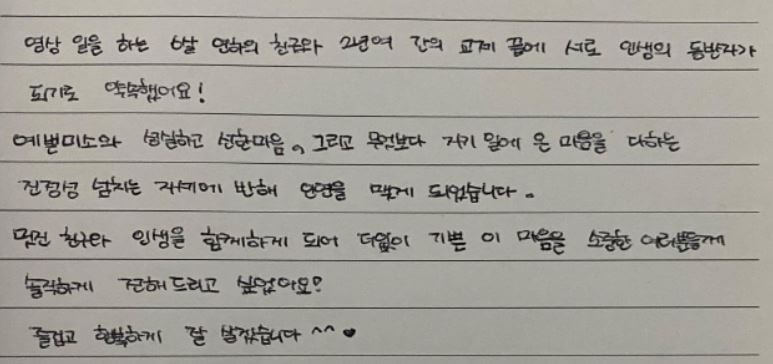 영상 일을 하는 6살 연하의 친구와 2년여 간의 교제 끝에 서로 인생의 동반자가
되기로 약속했어요!
예쁜미소와 성실하고 선한마음, 그리고 무엇보다 자기 일에 온 마음을 다하는
진정성 넘치는 자세에 반해 인연을 맺게 되었습니다.
멋진 친구와 인생을 함께하게 되어 더없이 기쁜 이 마음을 소중한 여러분들께
솔직하게 전해드리고 싶었어요!
즐겁고 행복하게 잘 살겠습니다 ^^ ♥